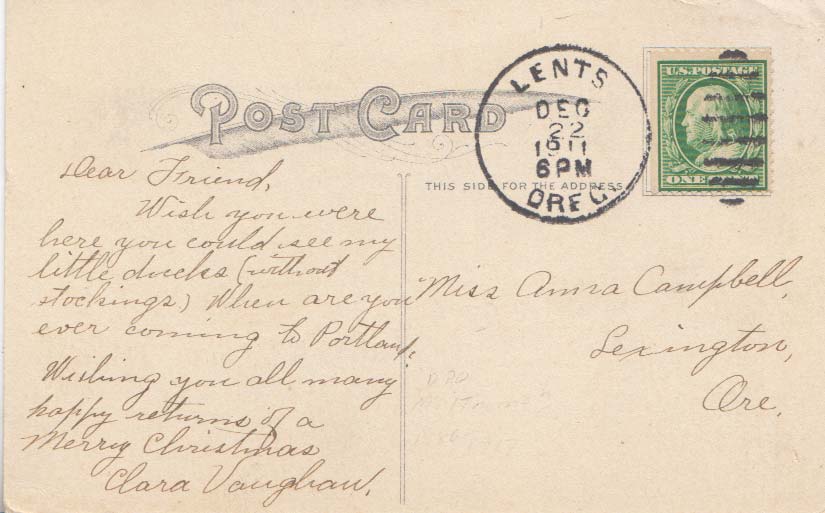 POST CARD
THIS SIDE FOR THE ADDRESS
LENTS
DEC
22
1911
6PM
OREG.
U.S. POSTAGE
ONE CENT
Dear Friend,
Wish you were
here you could see my
little ducks (without
stockings.) When are you
ever coming to Portland?
Wishing you all many
happy returns of a
Merry Christmas
Clara Vaughan.
Miss Anna Campbell,
Lexington,
Ore.